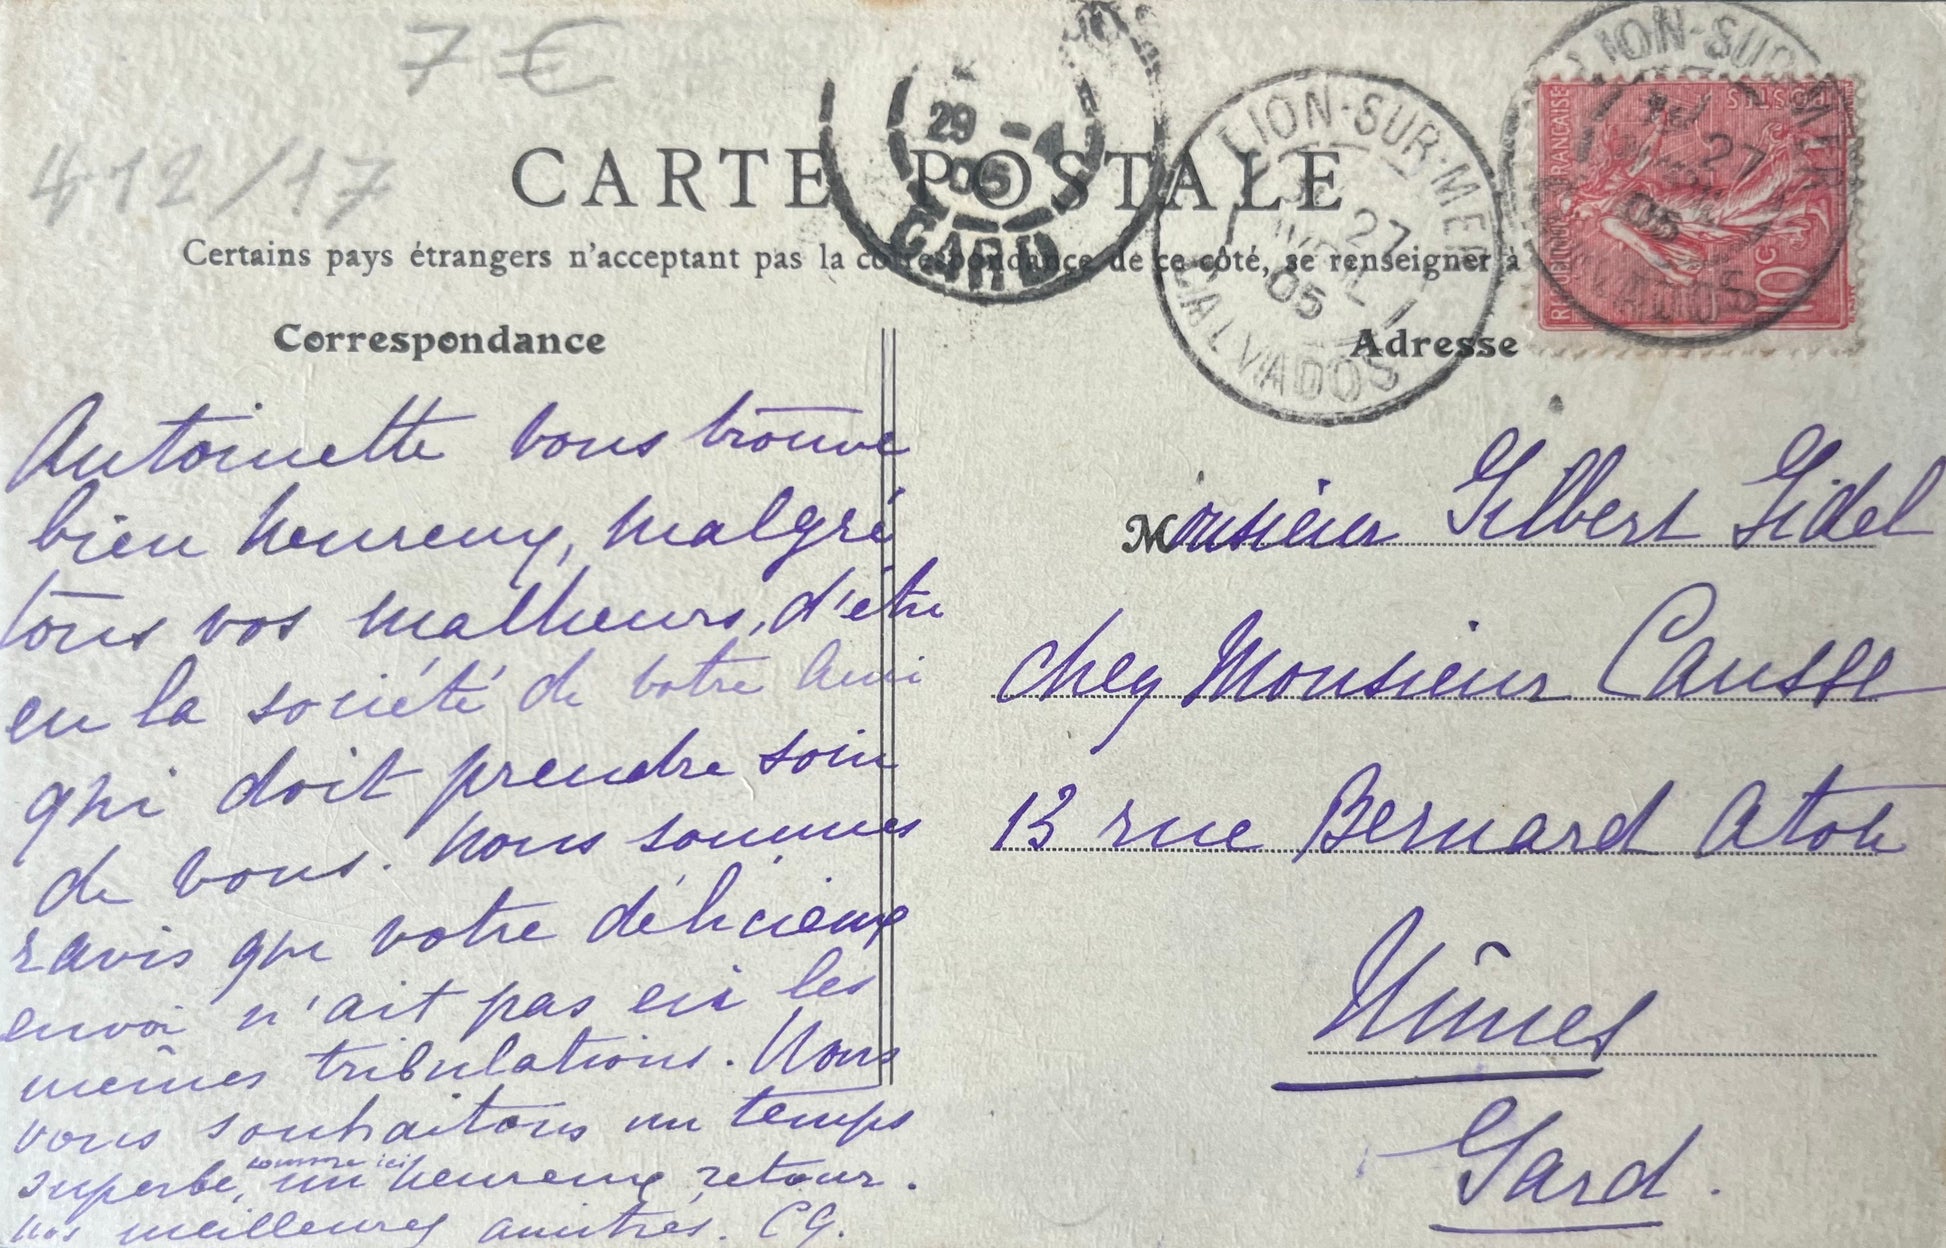 7 €
412/17
29 - 4
05
GARD
LION-SUR-MER
27
AVRIL
05
CALVADOS
LION-SUR-MER
27
05
CALVADOS
REPUBLIQUE FRANCAISE
POSTES
10c
CARTE POSTALE
Certains pays étrangers n'acceptant pas la correspondance de ce côté, se renseigner à
Correspondance
Antoinette vous trouve
bien heureux, malgré
tous vos malheurs, d'être
en la société de votre ami
qui doit prendre soin
de vous. Nous sommes
ravis que votre délicieux
envoi n'ait pas eu les
mêmes tribulations. Nous
vous souhaitons un temps
superbe, comme ici un heureux retour.
nos meilleures amitiés. CG.
Adresse
Monsieur Gilbert Gidel
chez Monsieur Causse
13 rue Bernard Aton
Nîmes
Gard.